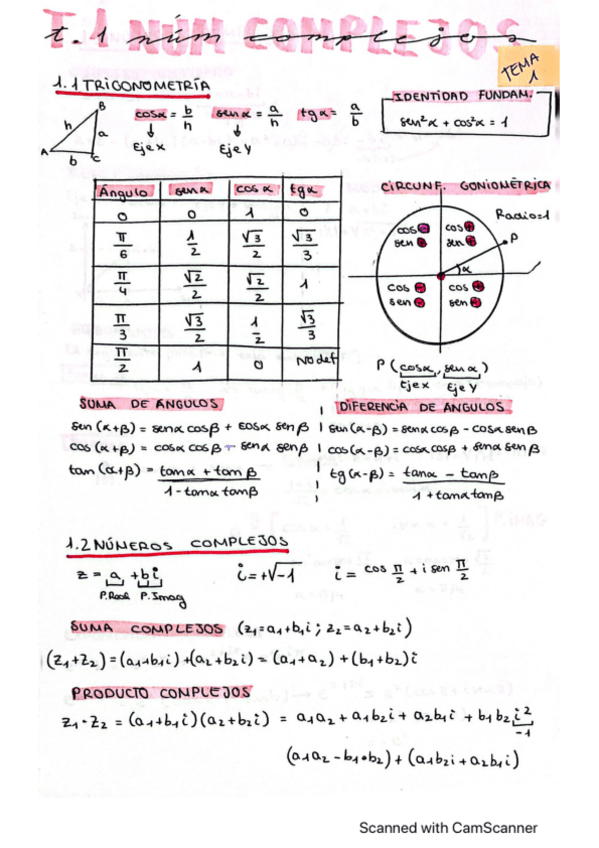 t.1 NÚM COMPLEJOS
TEMA 1
1.1 TRIGONOMETRÍA
B
h a
A b C
cosα = b/h senα = a/h tgα = a/b
Eje X Eje Y
IDENTIDAD FUNDAM.
sen²α + cos²α = 1
Ángulo senα cosα tgα
0 0 1 0
π/6 1/2 √3/2 √3/3
π/4 √2/2 √2/2 1
π/3 √3/2 1/2 √3/3
π/2 1 0 No def
CIRCUNF. GONIOMÉTRICA
Radio=1
cos ⊖ cos ⊕
sen ⊕ sen ⊕
P
α
cos ⊖ cos ⊕
sen ⊖ sen ⊖
P (cosα, senα)
Eje X Eje Y
SUMA DE ÁNGULOS
sen (α+β) = senα cosβ + cosα senβ
cos (α+β) = cosα cosβ - senα senβ
tan (α+β) = tanα + tanβ / 1 - tanα tanβ
DIFERENCIA DE ÁNGULOS
sen (α-β) = senα cosβ - cosα senβ
cos (α-β) = cosα cosβ + senα senβ
tg (α-β) = tanα - tanβ / 1 + tanα tanβ
1.2 NÚMEROS COMPLEJOS
z = a + bi i = +√-1 i = cos π/2 + i sen π/2
P.Real P.Imag
SUMA COMPLEJOS (z1=a1+b1i ; z2=a2+b2i)
(z1+z2) = (a1+b1i)+(a2+b2i) = (a1+a2) + (b1+b2)i
PRODUCTO COMPLEJOS
z1·z2 = (a1+b1i)(a2+b2i) = a1a2 + a1b2i + a2b1i + b1b2i²
-1
(a1a2 - b1·b2) + (a1b2i + a2b1i)
Scanned with CamScanner